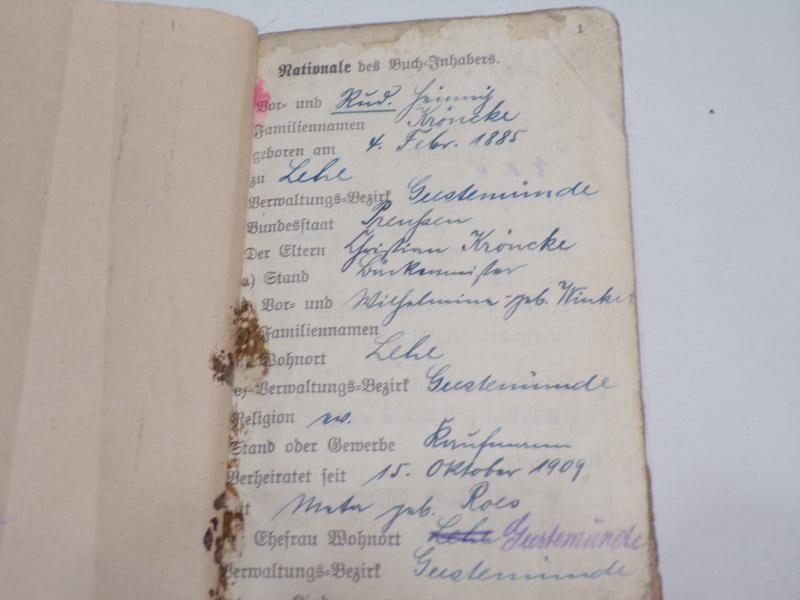 1
Nationale des Buch-Inhabers.
Vor- und Rud. Heinrich
Familiennamen Kröncke
geboren am 4. Febr. 1885
zu Lehe
Verwaltungs-Bezirk Geestemünde
Bundesstaat Preußen
Der Eltern Christian Kröncke
a) Stand Bäckermeister
Vor- und Wilhelmine geb. Winkel
Familiennamen
Wohnort Lehe
Verwaltungs-Bezirk Geestemünde
Religion ev.
Stand oder Gewerbe Kaufmann
Verheiratet seit 15. Oktober 1909
mit Meta geb. Roes
Ehefrau Wohnort Lehe Geestemünde
Verwaltungs-Bezirk Geestemünde